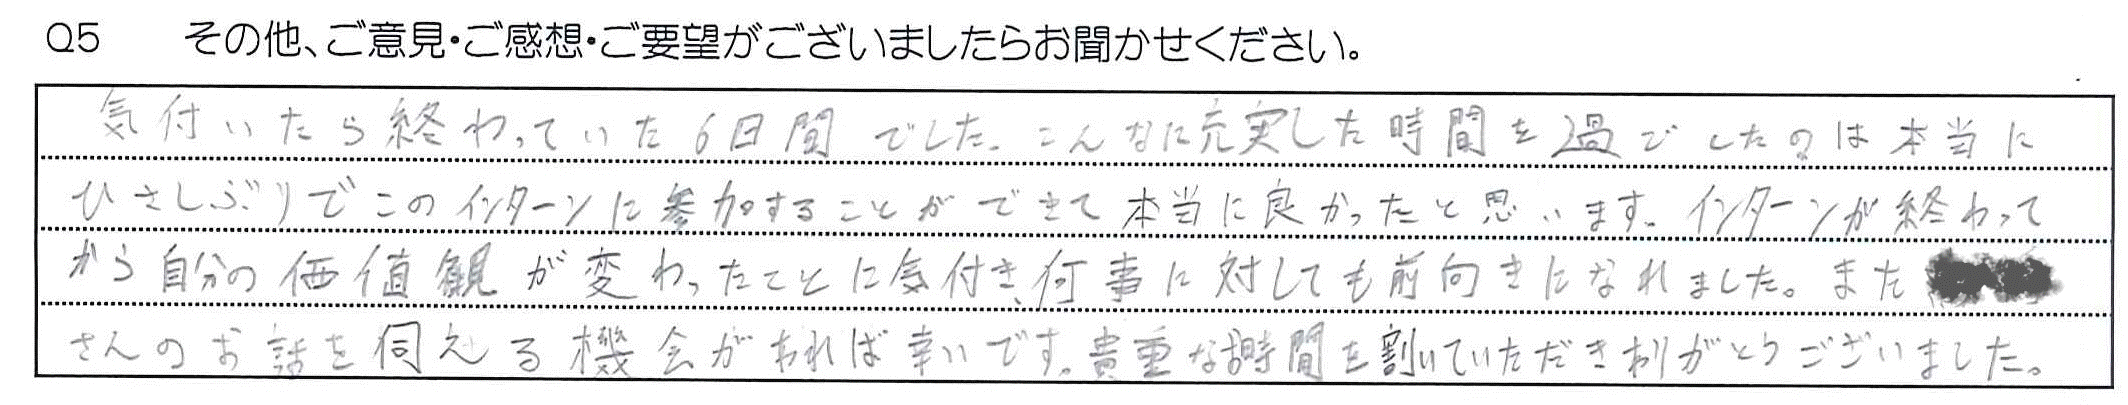 Q5 その他、ご意見・ご感想・ご要望がございましたらお聞かせください。
気付いたら終わっていた6日間でした。こんなに充実した時間を過ごしたのは本当に
ひさしぶりでこのインターンに参加することができて本当に良かったと思います。インターンが終わって
から自分の価値観が変わったことに気付き、何事に対しても前向きになれました。また
さんのお話を伺える機会があれば幸いです。貴重なお時間を割いていただきありがとうございました。